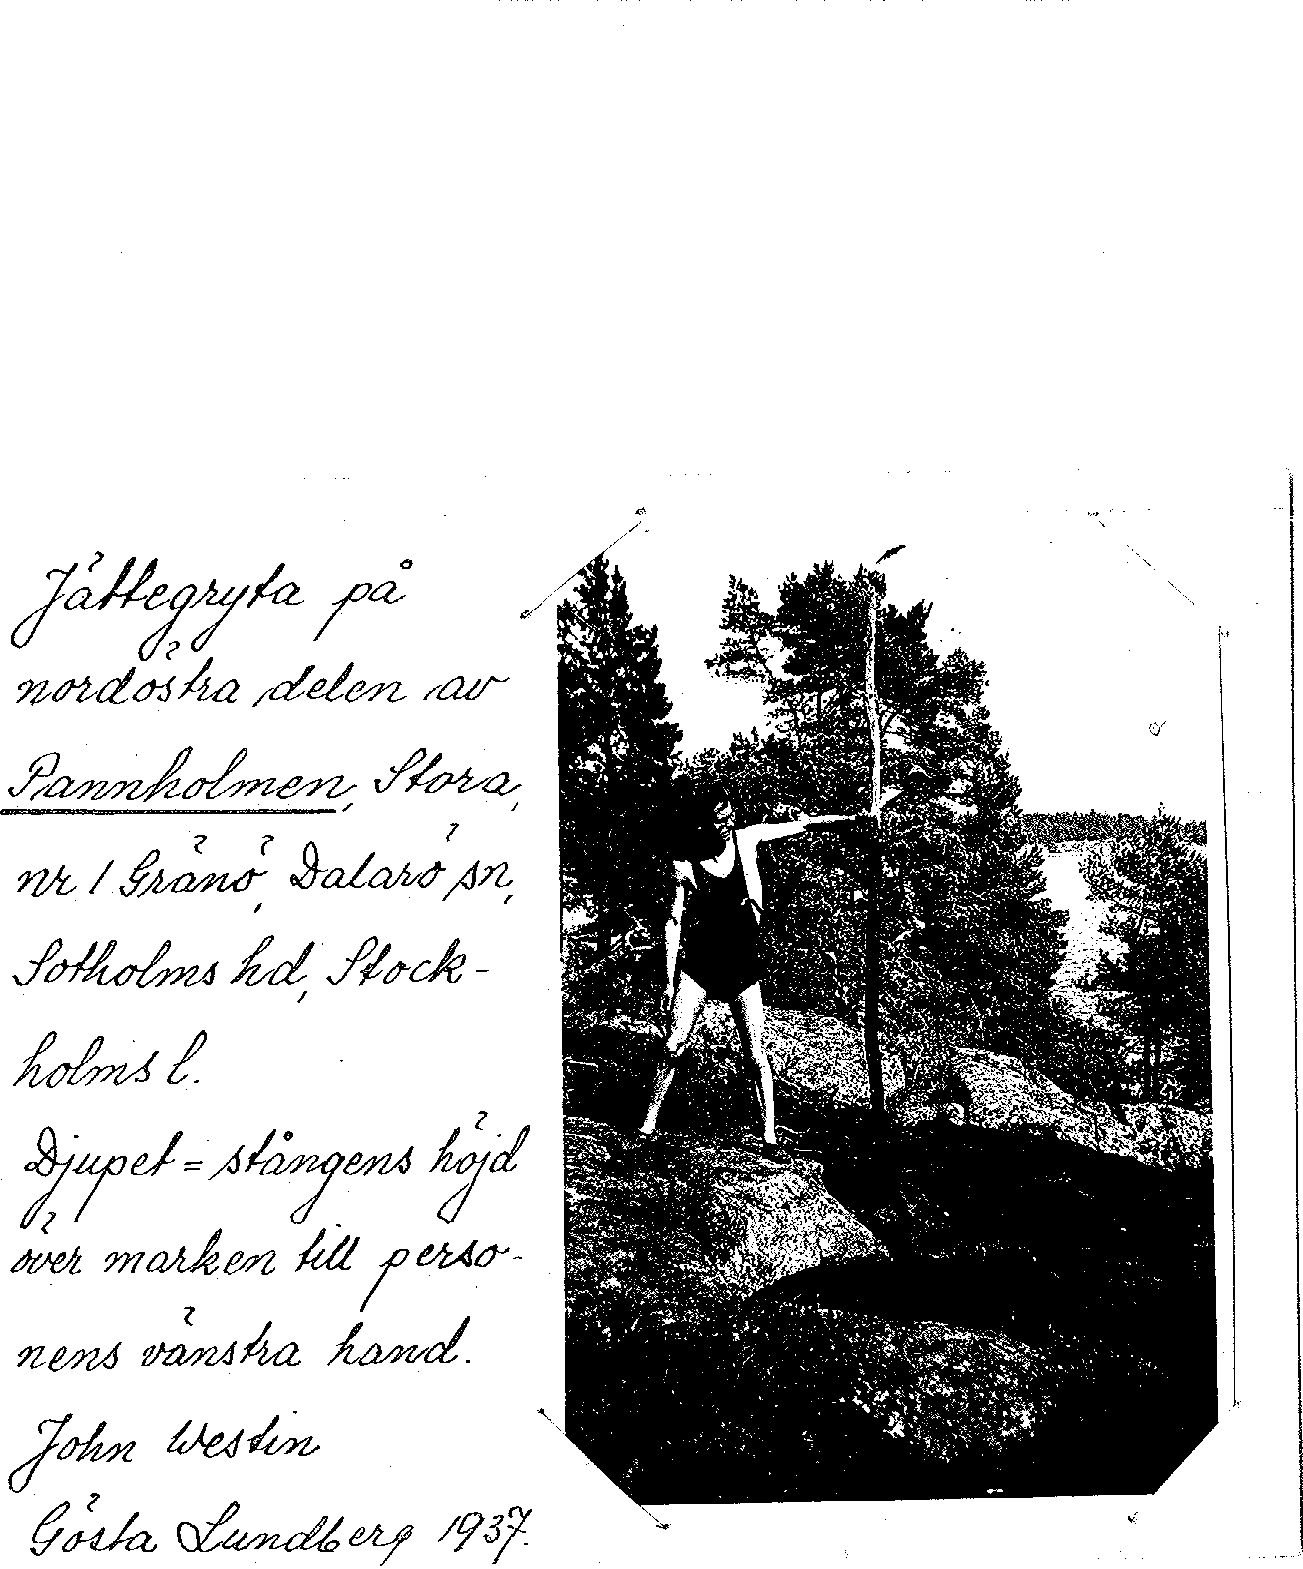 Jättegryta på
nordöstra delen av
Pannholmen, Stora,
nr 1 Gränö, Dalarö sn,
Sotholms hd, Stock-
holms l.
Djupet = stångens höjd
över marken till perso-
nens vänstra hand.
John Westin
Gösta Lundberg 1937.